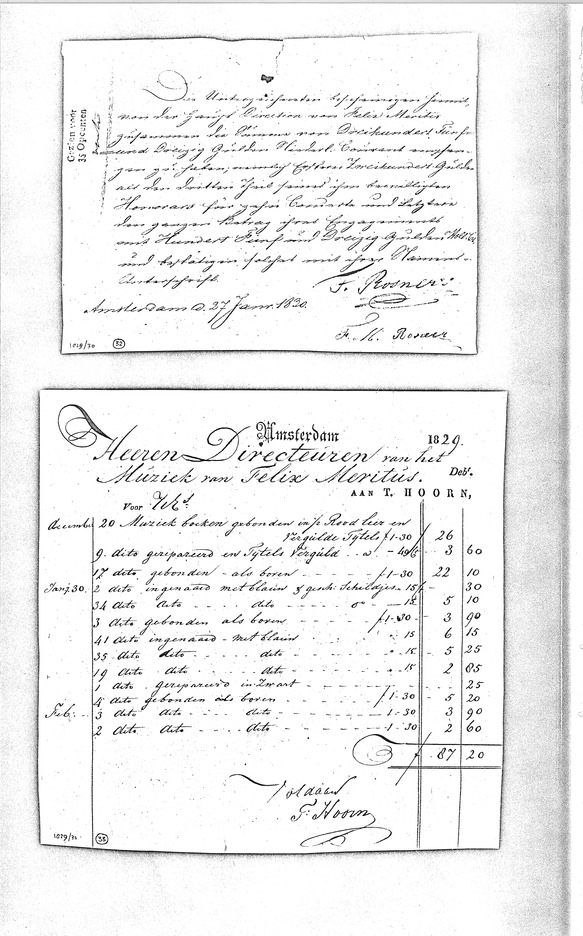 Gezien voor
35 Opcenten
Die Unterzeichneten bescheinigen hiermit,
von der Haupt Direction von Felix Meritis
zusammen die Summe von Dreihundert Fünf
und Dreizig Gulden Niederl. Courant empfan-
gen zu haben, nemlich Erstere Zweihundert Gulden
als den dritten Theil seines ihm bewilligten
Honorars für zehn Concerte und Letztere
den ganzen Betrag ihres Engagements
mit Hundert Fünf und Dreizig Gulden
und bestätigen solches mit ihrer Namens-
Unterschrift.
Amsterdam d. 27 Janr. 1830.
F. Rosner
F. M. Rosner
1029/30
32
Amsterdam 1829.
Heeren Directeuren van het
Muziek van Felix Meritus. Debt.
AAN T. HOORN,
Voor
December 20 Muziek boeken gebonden in Rood leer en
Vergulde Tytels f1-30 26
9 dito gerepareerd en Tytels Verguld 3 60
17 dito gebonden als boven f1-30 22 10
Jan. 30. 2 dito ingenaaid met blauw & gesch. Schildjes 15 30
34 dito dito dito 15 5 10
3 dito gebonden als boven f1-30 3 90
41 dito ingenaaid met blauw 15 6 15
35 dito dito dito 15 5 25
19 dito dito dito 15 2 85
1 dito gerepareerd in Zwart 25
4 dito gebonden als boven f1-30 5 20
Feb. 3 dito dito dito 1-30 3 90
2 dito dito dito 1-30 2 60
f 87 20
Voldaan
T. Hoorn
1029/31
33